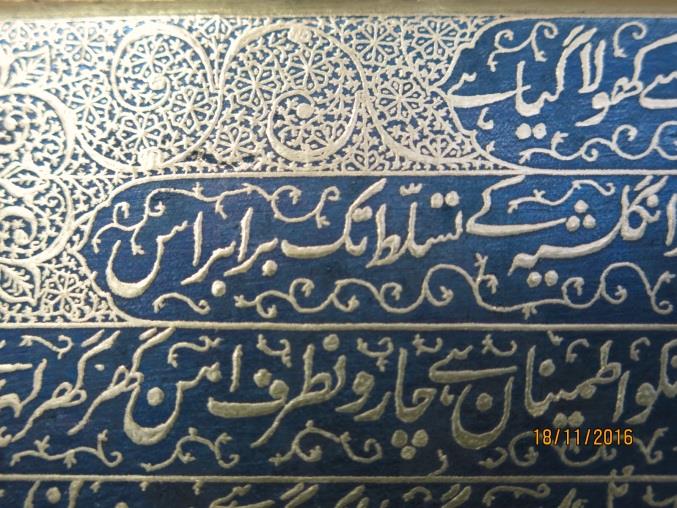 سے کھولا گیا ہے
انگلشیہ کے تسلّط تک برابر اس
اطمینان ہے چارونطرف امن گھر گھر
18/11/2016